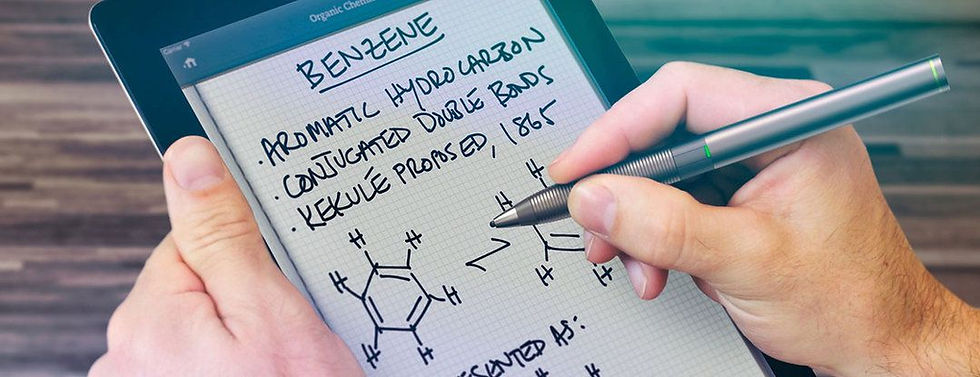 Carrier
Organic Chem
BENZENE
· AROMATIC HYDROCARBON
· CONJUGATED DOUBLE BONDS
· KEKULÉ PROPOSED, 1865
H
H
H H
H
H H H
H H
ESENTED AS:
H H